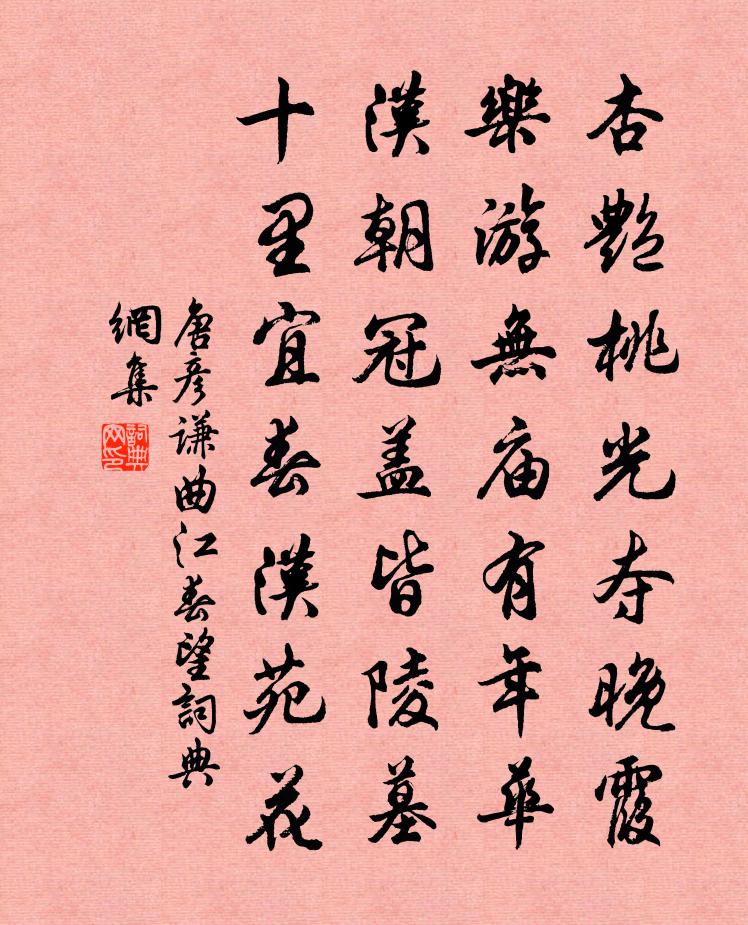 杏艷桃光夺晚霞
樂游無庙有年華
漢朝冠盖皆陵墓
十里宜春漢苑花
唐彦谦曲江春望詞典
網集
詞典
网印